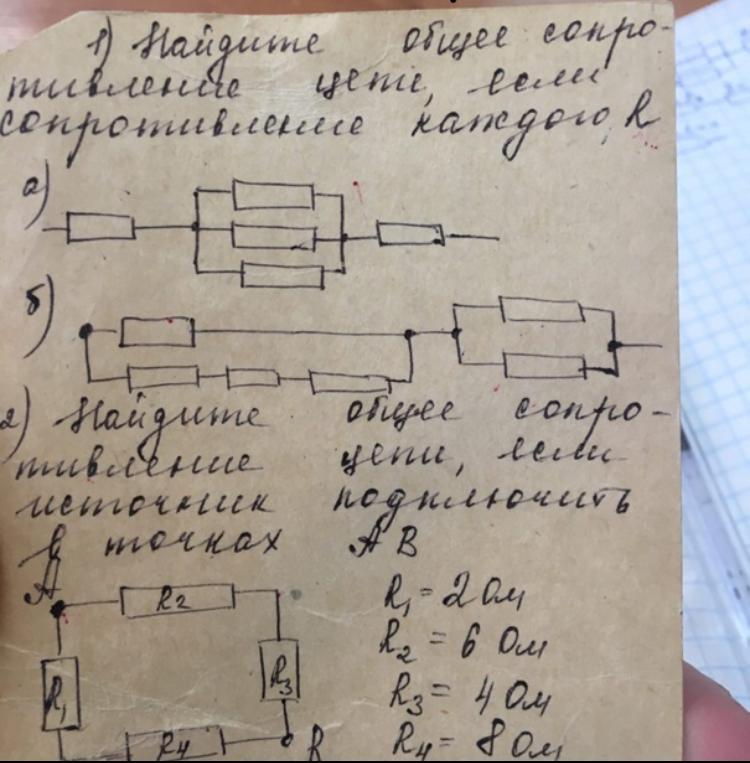 1) Найдите общее сопро-
тивление цепи, если
сопротивление каждого R
а)
б)
2) Найдите общее сопро-
тивление цепи, если
источник подключить
в точках А В
А
R2
R1
R3
R4
В
R1 = 2 Ом
R2 = 6 Ом
R3 = 4 Ом
R4 = 8 Ом